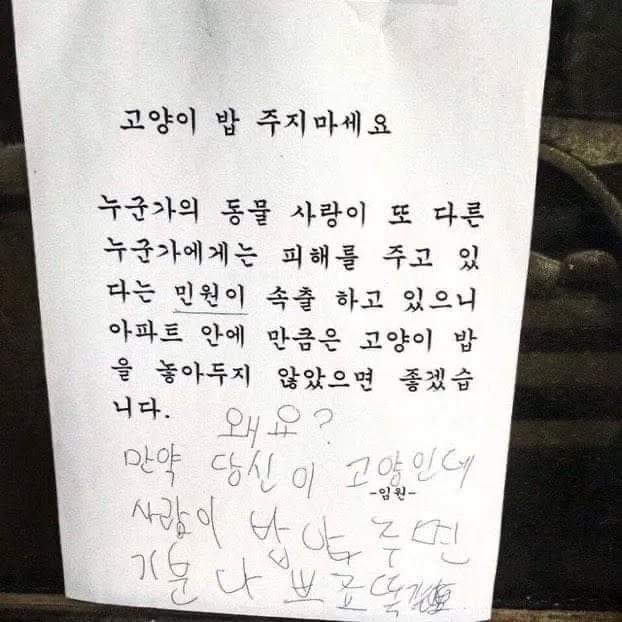 고양이 밥 주지마세요
누군가의 동물 사랑이 또 다른
누군가에게는 피해를 주고 있
다는 민원이 속출 하고 있으니
아파트 안에 만큼은 고양이 밥
을 놓아두지 않았으면 좋겠습
니다.
왜요?
만약 당신이 고양인데
-임원-
사람이 밥 안 주면
기분 나쁘고 똑같